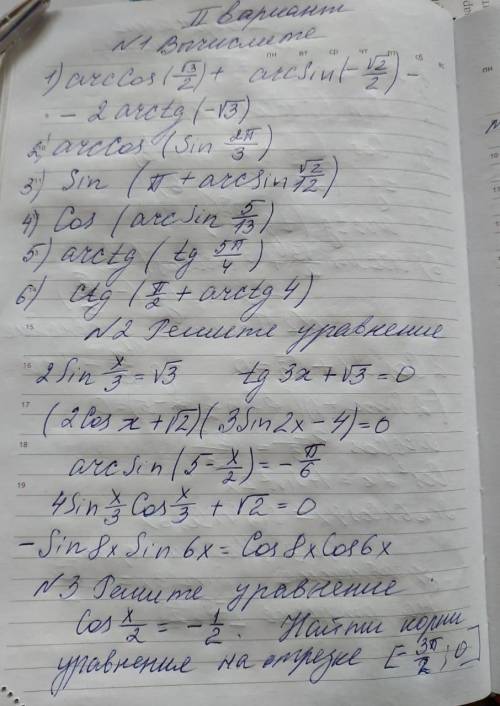 II вариант
N1 Вычислите
1) arccos(√3/2) + arcsin(-√2/2) -
- 2 arctg(-√3)
2) arccos(sin 2π/3)
3) Sin (π + arcsin √2/12)
4) Cos (arcsin 5/13)
5) arctg (tg 5π/4)
6) ctg (π/2 + arctg 4)
N2 Решите уравнение
2Sin x/3 = √3 tg 3x + √3 = 0
(2Cos x + √2)(3Sin2x - 4) = 0
arcSin (5 - x/2) = - π/6
4Sin x/3 Cos x/3 + √2 = 0
- Sin 8x Sin 6x = Cos 8x Cos 6x
N3 Решите уравнение
Cos x/2 = - 1/2. Найти корни
уравнения на отрезке [-3π/2; 0]